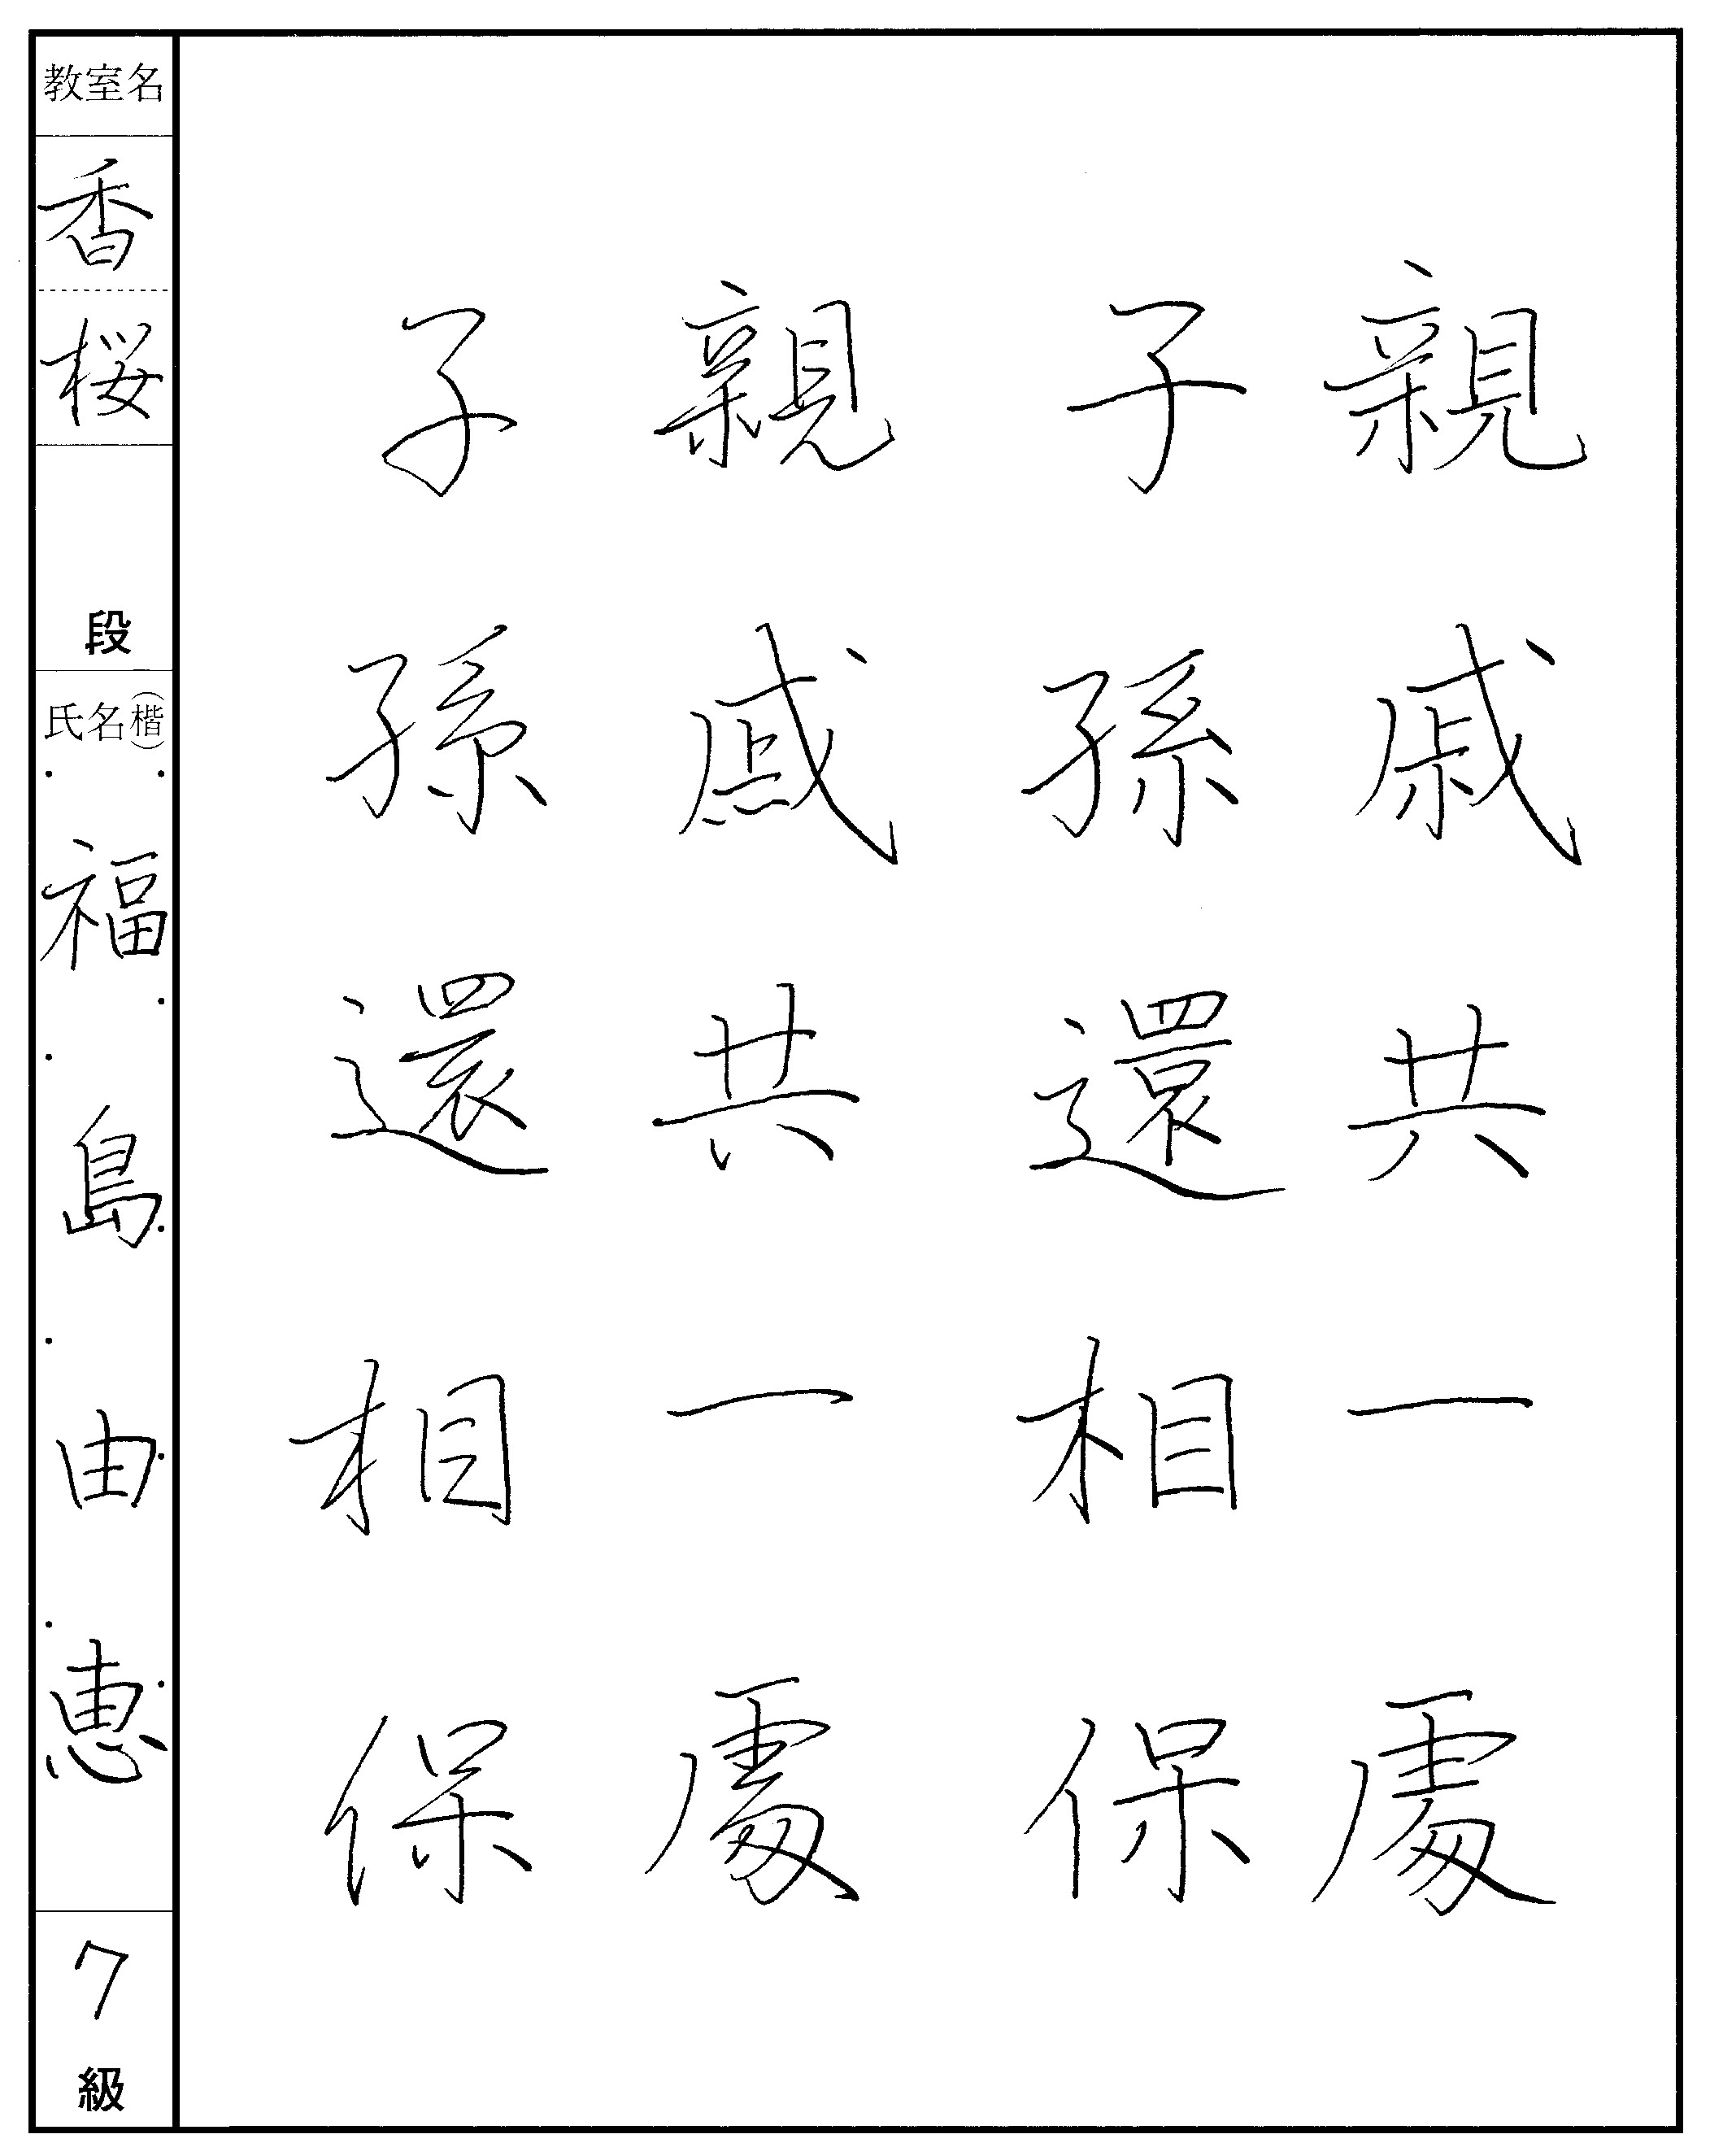 親戚共一處
子孫還相保
親戚共一處
子孫還相保
教室名
香桜
段
氏名(楷)
福島由恵
7級